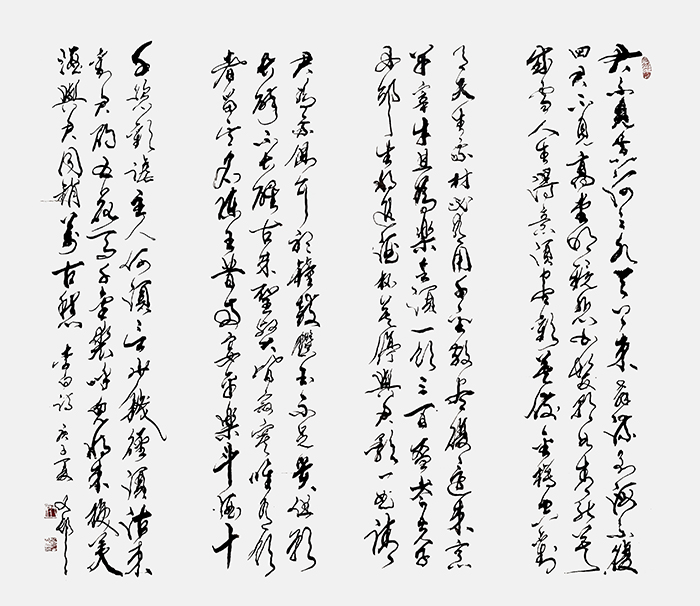 君不見黃河之水天上來奔流到海不復
回君不見高堂明鏡悲白髮朝如青絲暮
成雪人生得意須盡歡莫使金樽空對
月天生我材必有用千金散盡還復來烹
羊宰牛且為樂會須一飲三百杯岑夫子
丹邱生將進酒杯莫停與君歌一曲請
君為我傾耳聽鐘鼓饌玉不足貴但願
長醉不醒古來聖賢皆寂寞唯有飲
者留其名陳王昔時宴平樂斗酒十
千恣歡謔主人何須言少錢徑須沽來
對君酌五花馬千金裘呼兒將來換美
酒與君同銷萬古愁 李白詩 庚子夏